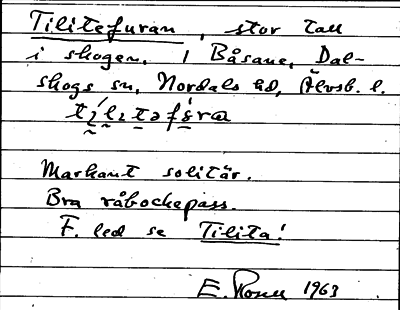 Tilitefuran, stor tall
i skogen, i Båsane, Dal-
skogs sn, Nordals hd, Älvsb. l.
Markant solitär.
Bra råbockepass.
F. led se Tilita!
E. Rosell 1963